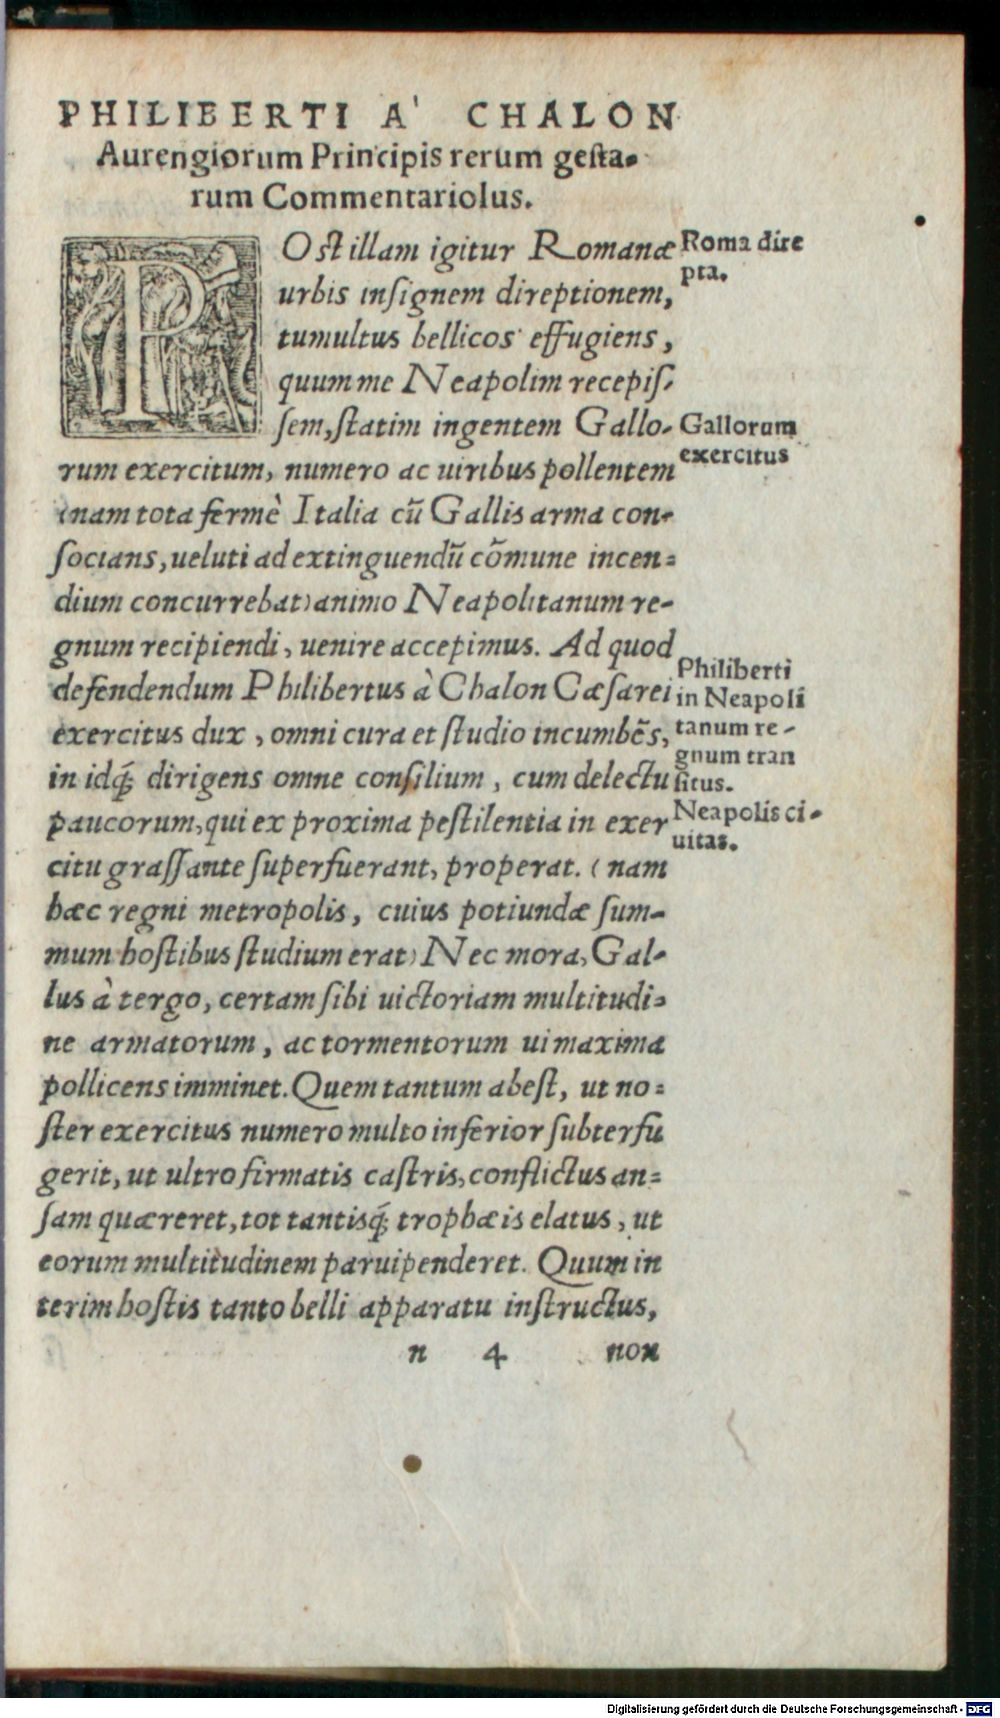 PHILIBERTI A' CHALON
Aurengiorum Principis rerum gesta-
rum Commentariolus.
POst illam igitur Romanæ
urbis insignem direptionem,
tumultus bellicos effugiens,
quum me Neapolim recepis-
sem, statim ingentem Gallo-
rum exercitum, numero ac uiribus pollentem
(nam tota fermè Italia cũ Gallis arma con-
socians, ueluti ad extinguendũ cõmune incen-
dium concurrebat) animo Neapolitanum re-
gnum recipiendi, uenire accepimus. Ad quod
defendendum Philibertus à Chalon Cæsarei
exercitus dux, omni cura et studio incumbẽs,
in idq́; dirigens omne consilium, cum delectu
paucorum, qui ex proxima pestilentia in exer
citu grassante superfuerant, properat. (nam
hæc regni metropolis, cuius potiundæ sum-
mum hostibus studium erat) Nec mora, Gal-
lus à tergo, certam sibi uictoriam multitudi-
ne armatorum, ac tormentorum ui maxima
pollicens imminet. Quem tantum abest, ut no-
ster exercitus numero multo inferior subterfu
gerit, ut ultro firmatis castris, conflictus an-
sam quæreret, tot tantisq́; trophæis elatus, ut
eorum multitudinem paruipenderet. Quum in
terim hostis tanto belli apparatu instructus,
n 4 non
Roma dire
pta.
Gallorum
exercitus
Philiberti
in Neapoli
tanum re-
gnum tran
situs.
Neapolis ci-
uitas.
Digitalisierung gefördert durch die Deutsche Forschungsgemeinschaft - DFG